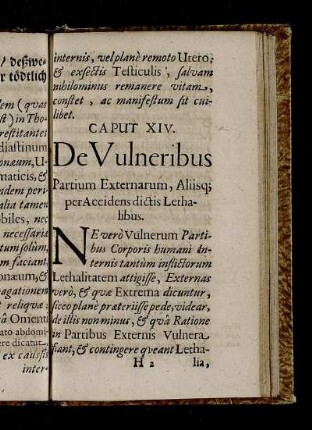 / deßwe-
r tödtlich
em (quæ
st) in Tho-
restitantei
diastinum
onæum, U-
maticis, &
ndem peri-
alia tamen
obiles, nec
necessariò
tum solùm,
m faciant,
onæum, &
agationem
e reliquæ:
à Omenti
ato abdomi-
ere dicatur
ex caussis
inter-
internis, vel planè remoto Utero,
& exsectis Testiculis, salvam
nihilominus remanere vitam,
constet, ac manifestum sit cui-
libet.
CAPUT XIV.
De Vulneribus
Partium Externarum, Aliisq;
per Accidens dictis Letha-
libus.
NE verò Vulnerum Parti-
bus Corporis humani In-
ternis tantùm inflictorum
Lethalitatem attigisse, Externas
verò, & quæ Extrema dicuntur,
sicco planè præteriisse pede, videar,
de illis non minus, & quâ Ratione
in Partibus Externis Vulnera
fiant, & contingere queant Letha-
H 2 lia,